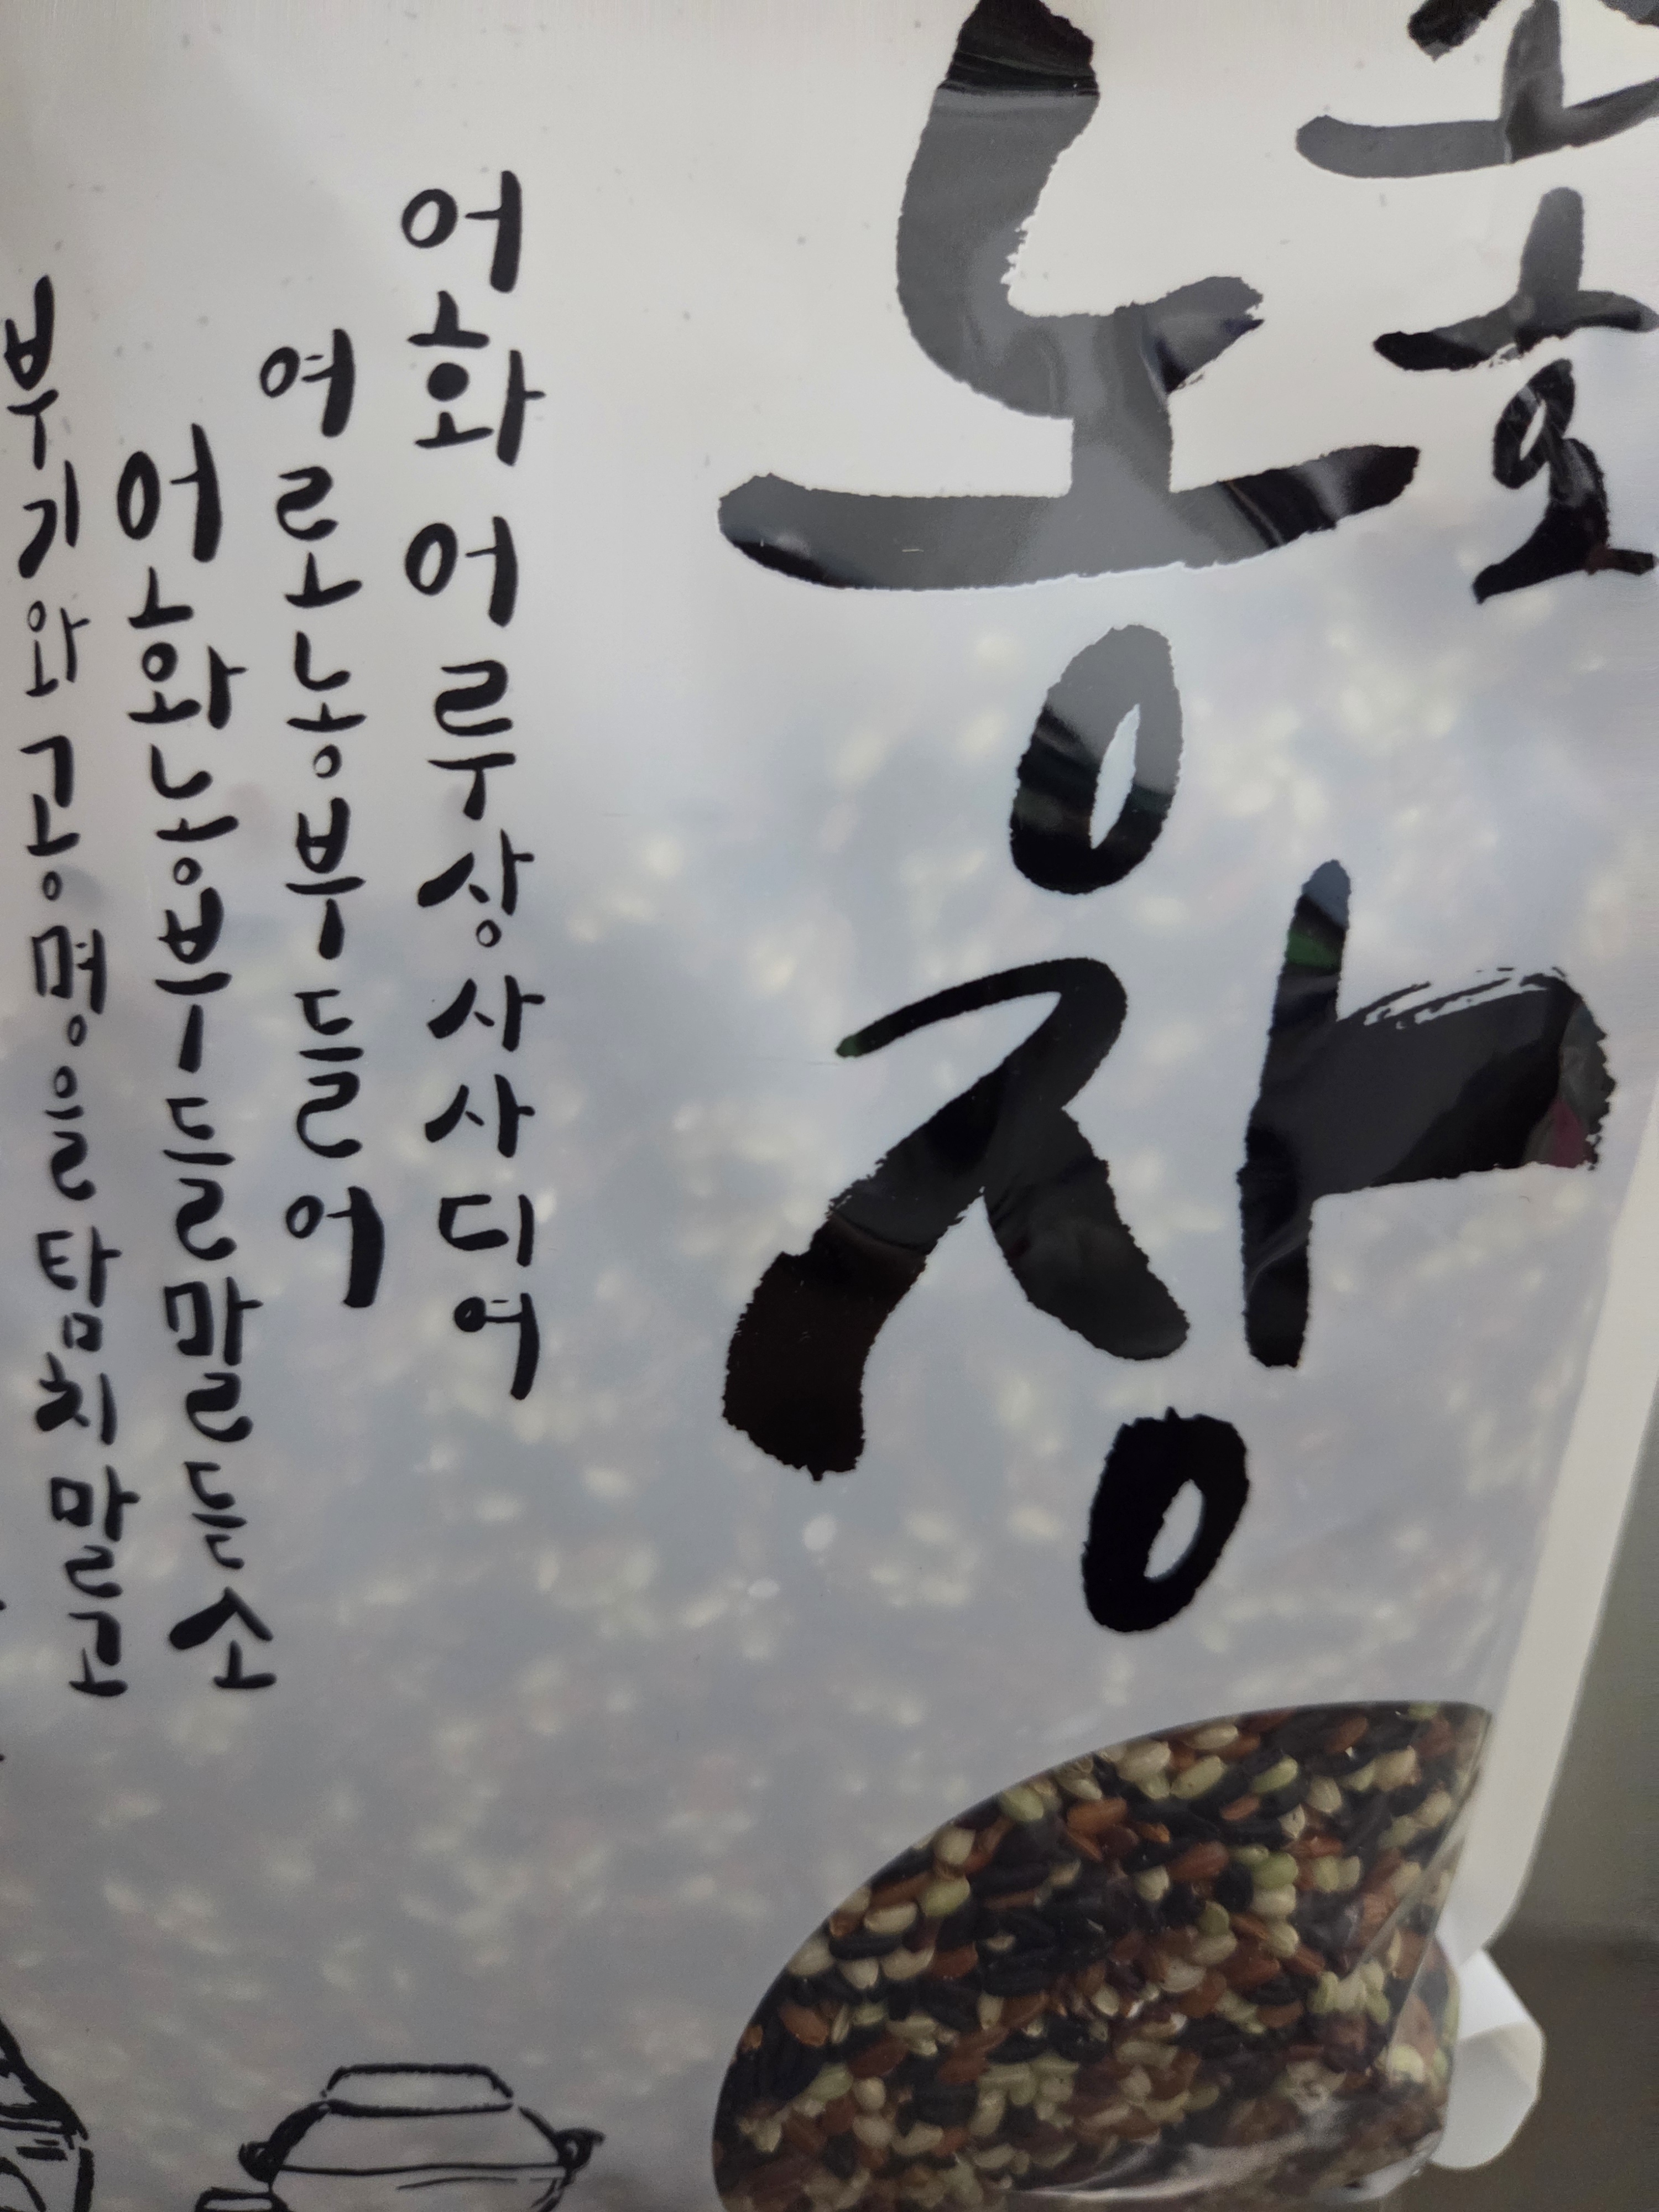 농장
어화 어루상사사디여
여로농부들어
어화농부들말듣소
부기와공명을탐치말고